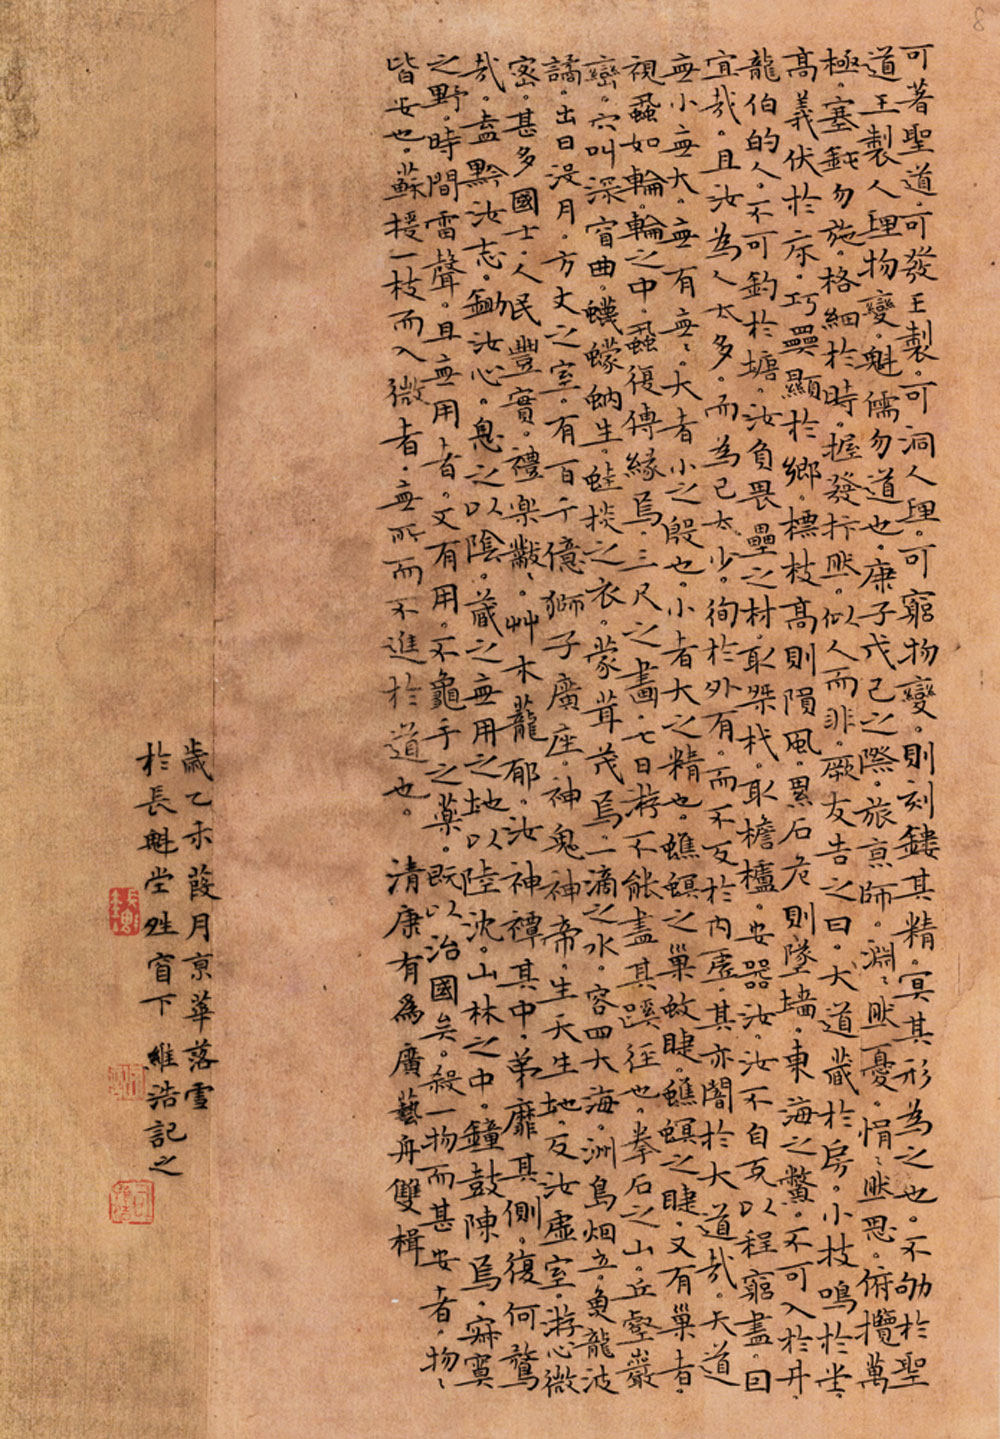 可著聖道。可發王製。可洞人理。可窮物變。則刻鏤其精。冥其形為之也。不劬於聖
道王製人理物變。魁儒勿道也。康子戊己之際。旅京師。淵〻然憂。悁〻然思。俯攬萬
極。塞鈍勿施。格絪於時。握發抃然。似人而非。厥友告之曰。大道藏於房。小技鳴於堂。
高義伏於床。巧異顯於鄉。標枝高則隕風。累石危則墜墻。東海之鱉。不可入於井。
龍伯的人。不可釣於塘。汝負畏壘之材。取桀杙。取檐櫨。安器汝。汝不自克以程窮盡。固
宜哉。且汝為人太多。而為己太少。徇於外有。而不反於內虛。其亦闇於大道哉。夫道
無小無大。無有無〻。大者小之殷也。小者大之精也。蟭螟之巢蚊睫。蟭螟之睫。又有巢者。
視虱如輪。輪之中。虱復傅緣焉。三尺之畫。七日游不能盡其蹊徑也。拳石之山。丘壑巖
巒。穴叫深窅曲。蠛蠓蚋生。蛙棪之衣。蒙茸茂焉。一滴之水。容四大海。洲島烟立。魚龍波
譎。出日沒月。方丈之室。有百千億獅子廣座。神鬼神帝。生天生地。反汝虛室。游心微
密。甚多國士。人民豐實。禮樂黻〻。艸木蘢郁。汝神禫其中。弟靡其側。復何騖
哉。盍黔汝志。鋤汝心。息之以陰。藏之無用之地以陸沈。山林之中。鐘鼓陳焉。寂寞
之野。時間雷聲。且無用者。文有用。不龜手之藥。既以治國矣。殺一物而甚安者。物〻
皆安也。蘇援一枝而入微者。無所而不進於道也。 清康有為廣藝舟雙楫
歲乙未葭月京華落雪
於長魁堂牲窅下 維浩記之